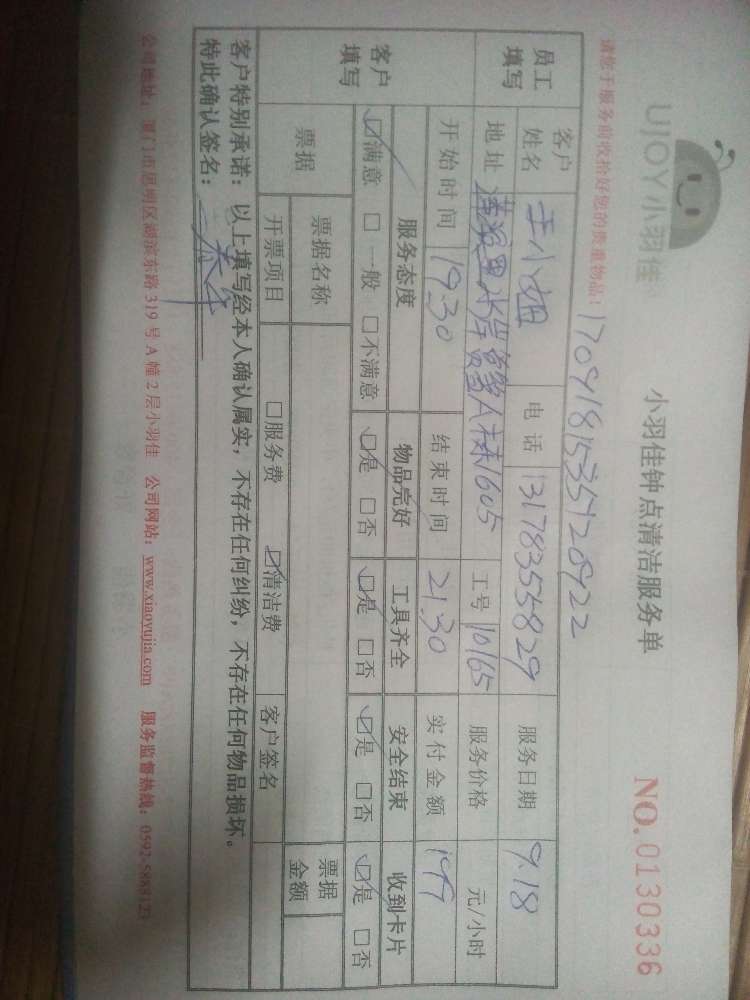 UJOY小羽佳
小羽佳钟点清洁服务单
NO. 0130336
请您于服务前收拾好您的贵重物品!
员工填写 客户姓名 王小姐 电话 13178355829 服务日期 9.18
地址 A栋1605 工号 10165 服务价格 元/小时
开始时间 19:30 结束时间 21:30 实付金额
客户填写 服务态度 物品完好 工具齐全 安全结束 收到卡片
☑满意 □一般 □不满意 ☑是 □否 ☑是 □否 ☑是 □否 ☑是 □否
票据 票据名称 票据金额
开票项目 □服务费 ☑清洁费 客户签名
客户特别承诺:以上填写经本人确认属实,不存在任何纠纷,不存在任何物品损坏。
特此确认签名:
公司地址:厦门市思明区湖滨东路 319 号 A 幢 2 层小羽佳 公司网站:www.xiaoyujia.com 服务监督热线:0592-5889123